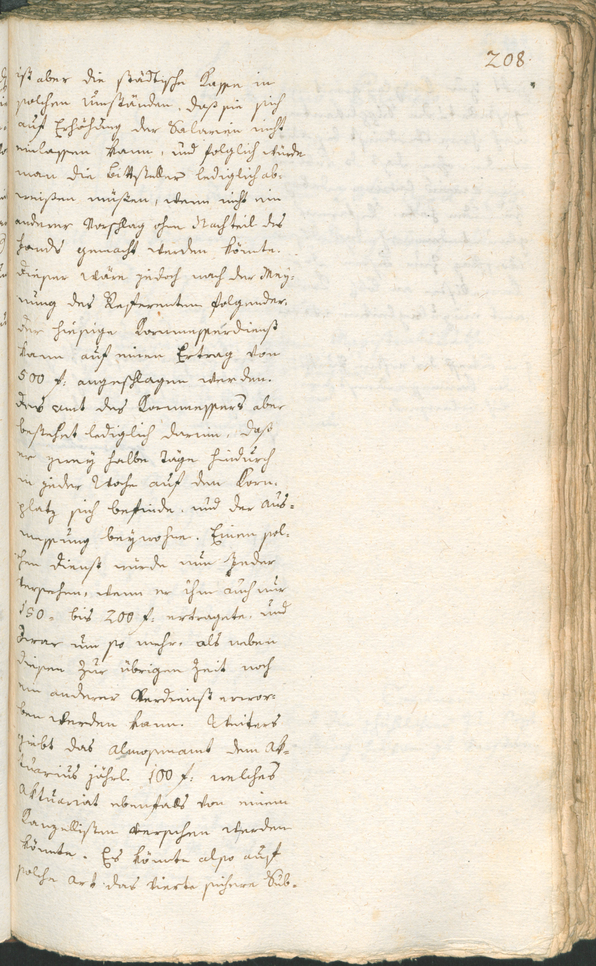 208
ist aber die städtische Kasse in
solchen Umständen, daß sie sich
auf Erhöhung der Salarien nicht
einlassen kann, und folglich würde
man die Bittsteller lediglich ab-
weisen müßen, wenn nicht ein
anderer Vorschlag ohne Nachteil des
Fonds gemacht werden könte.
Dieser wäre jedoch nach der Mey-
nung des Referenten folgender.
Der hiesige Kornmesserdienst
kann auf einen Ertrag von
500 f: angeschlagen werden.
Das amt des Kornmessers aber
bestehet lediglich darinn, daß
er zwey halbe Täge hindurch
in jeder Woche auf dem Korn-
platz sich befinde, und der Aus-
messung beywohne. Einen sol-
chen Dienst würde nun Jeder
versehen, wenn er ihm auch nur
150- bis 200 f: ertragete, und
zwar um so mehr, als neben
diesen zur übrigen Zeit noch
ein anderer Verdienst erwor-
ben werden kann. Weiters
giebt das Almosenamt dem Ak-
tuarius jährl. 100 f: welches
Aktuariat ebenfalls von einem
Kanzellisten versehen werden
könnte. Es könnte also auf
solche Art das vierte sichere Sub-